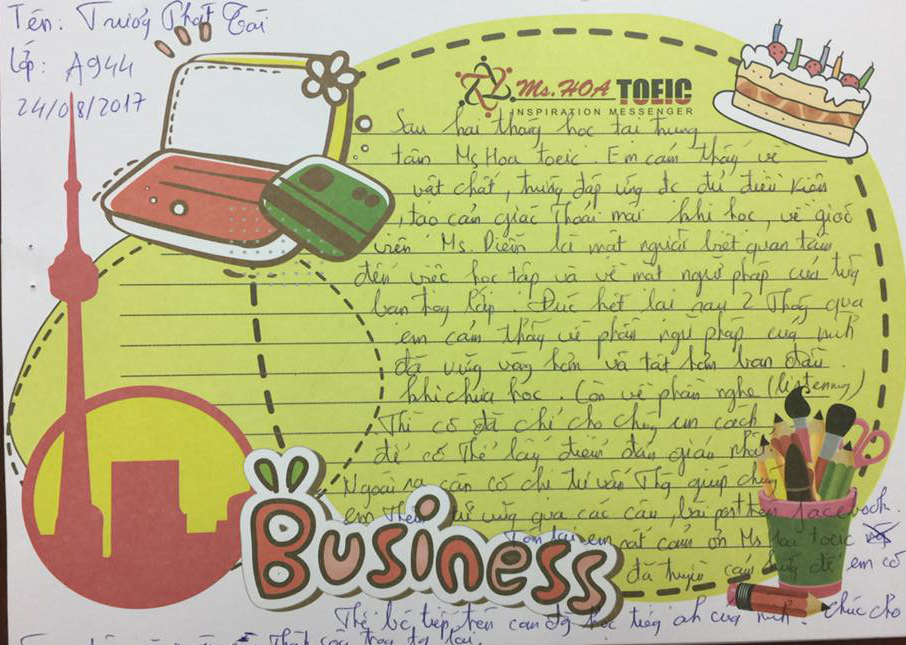 Tên: Trương Phát Tài
Lớp: A944
24/08/2017
Ms. HOA TOEIC
INSPIRATION MESSENGER
Sau hai tháng học tại trung
tâm Ms Hoa toeic. Em cảm thấy về
vật chất, trường đáp ứng đc đủ điều kiện
, tạo cảm giác thoải mái khi học, về giáo
viên Ms. Diễm là một người biết quan tâm
đến việc học tập và về mặt ngữ pháp của từng
bạn trong lớp. Đúc kết lại sau 2 tháng qua
em cảm thấy về phần ngữ pháp của mình
đã vững vàng hơn và tốt hơn ban đầu
khi chưa học. Còn về phần nghe (listenning)
Thì cô đã chỉ cho chúng em cách
để có thể lấy điểm đơn giản nhất.
Ngoài ra còn có chi từ vấn Thg giúp chúng
em thêm từ vựng qua các câu, bài post trên facebook.
Tóm lại em rất cảm ơn Ms toeic
đã truyền cảm hứng để em có
Thể bước tiếp trên con đg học tiếng anh của mình. Chúc cho
Thành công trong tg lai.
Business